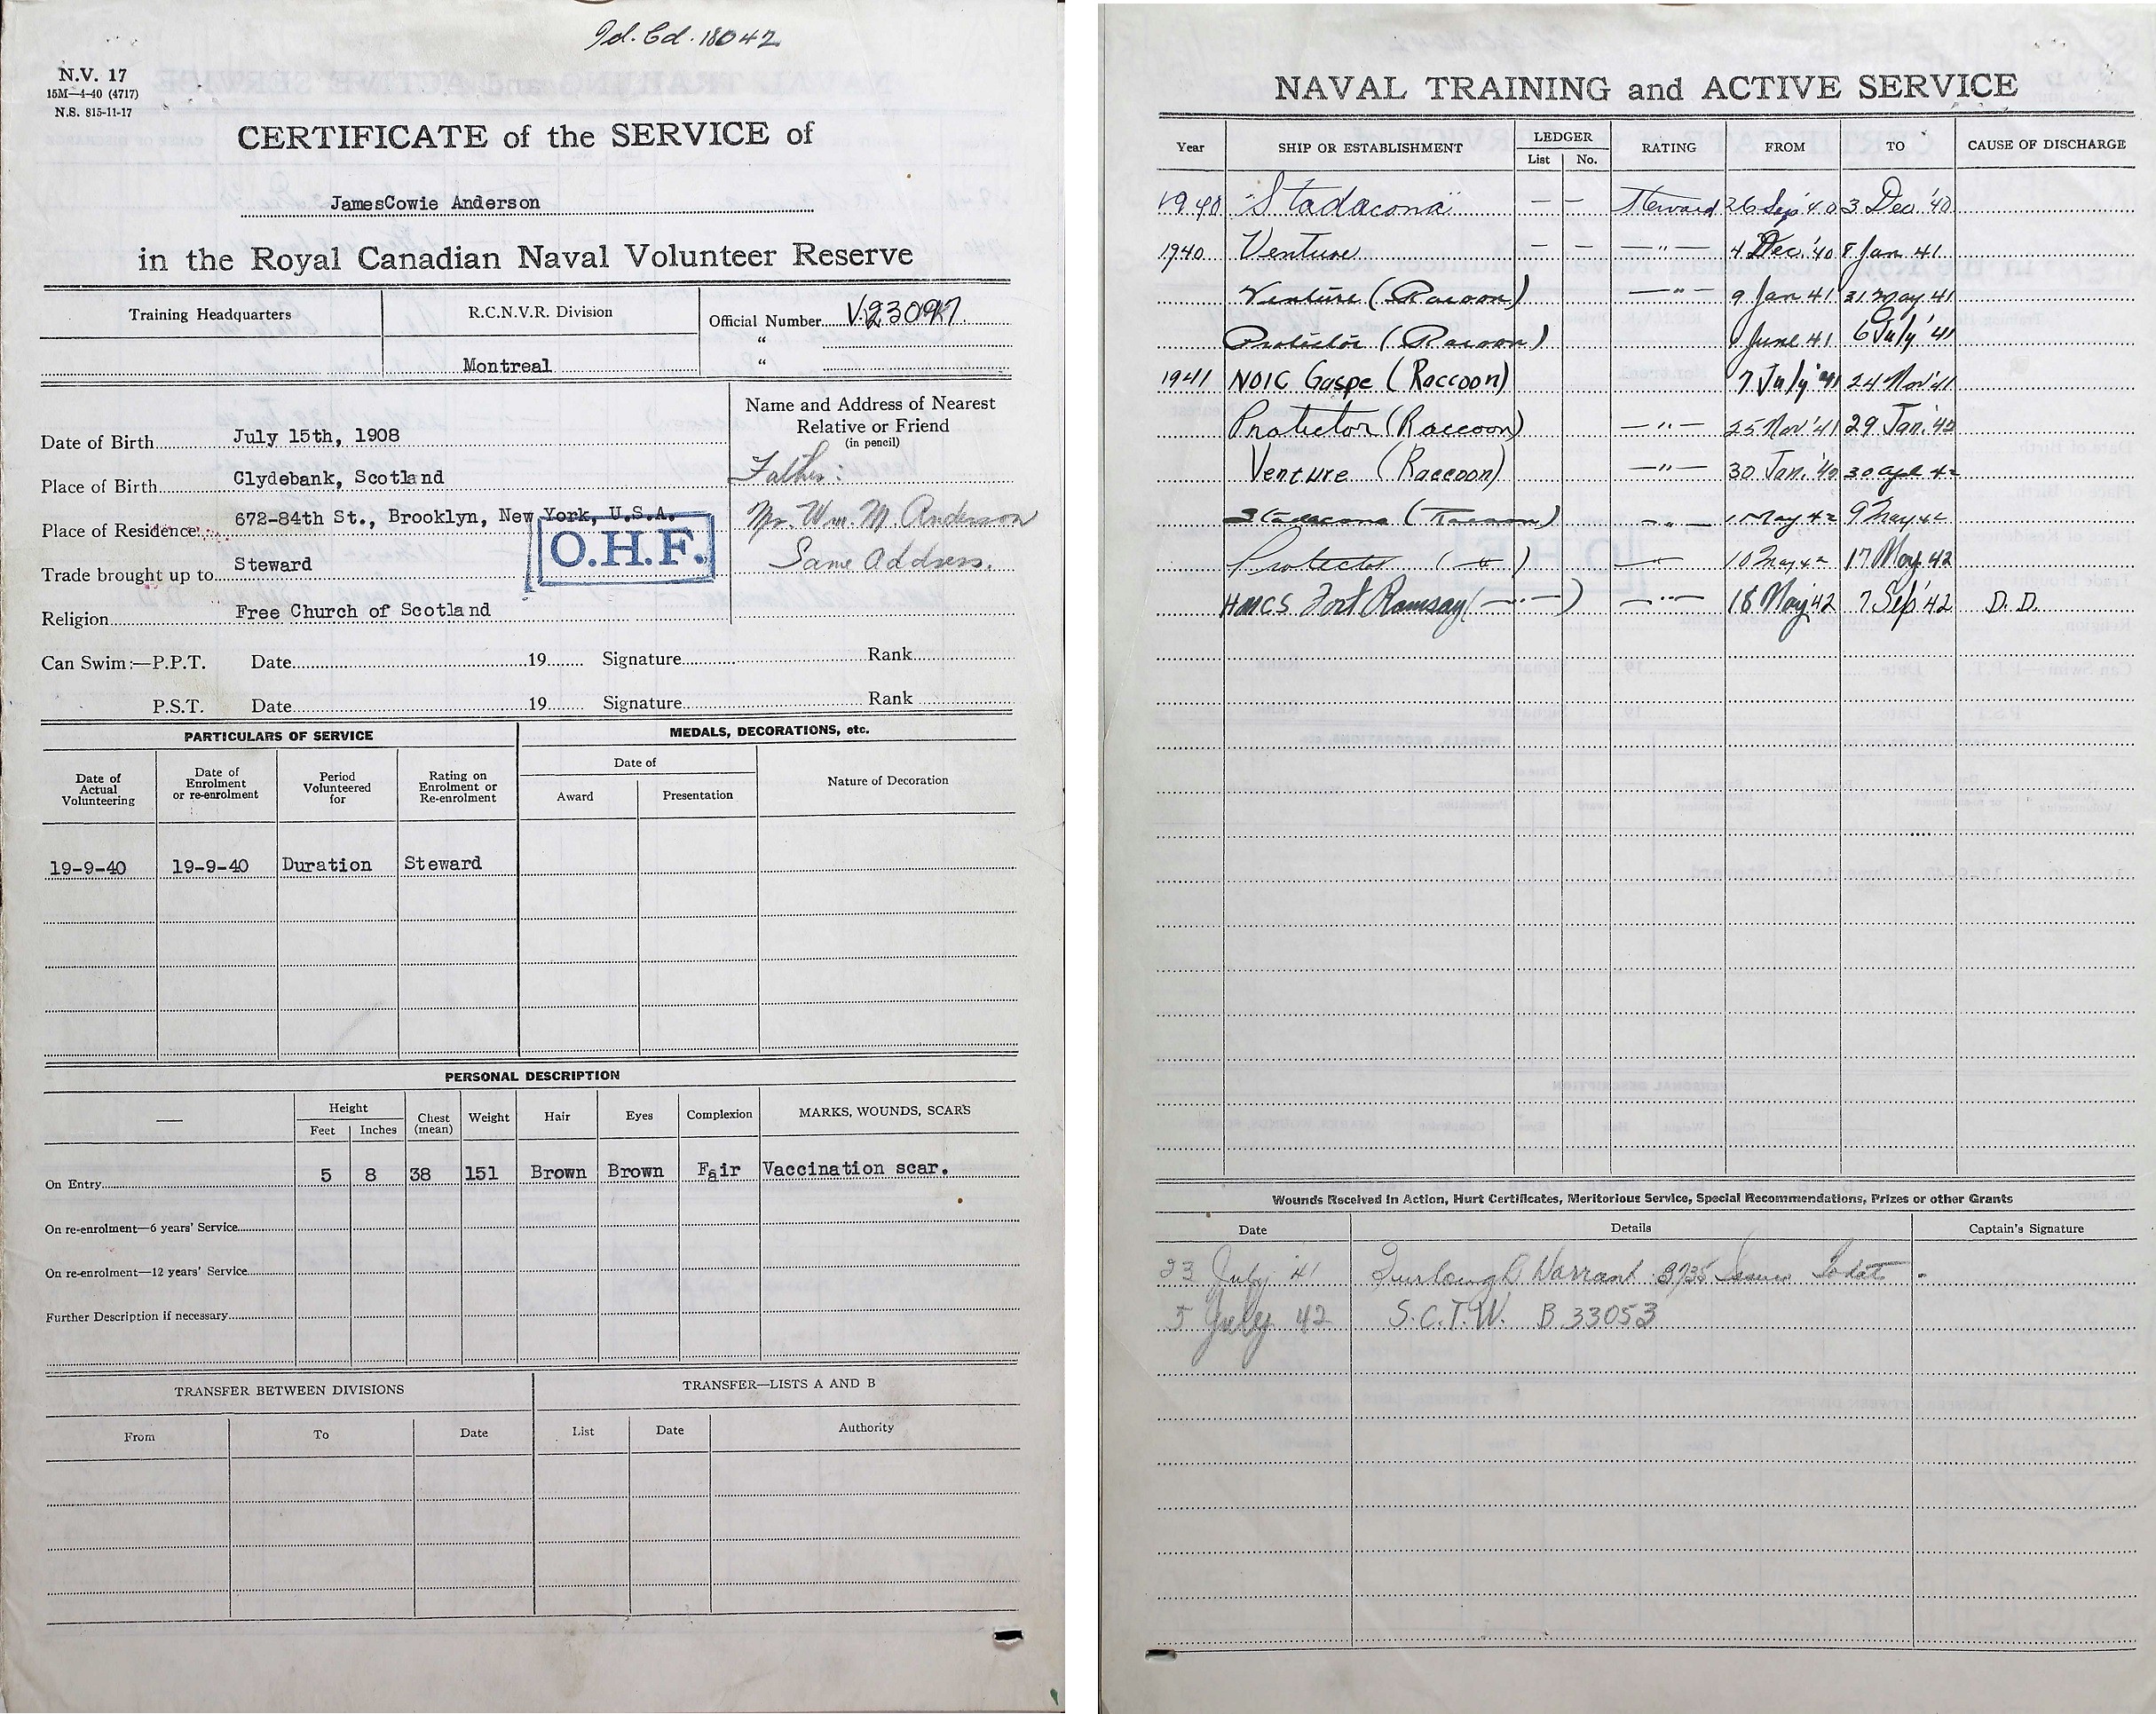 Id. Cd. 18042
N.V. 17
15M—4-40 (4717)
N.S. 815-11-17
CERTIFICATE of the SERVICE of
JamesCowie Anderson
in the Royal Canadian Naval Volunteer Reserve
Training Headquarters R.C.N.V.R. Division Official Number V.23097
"
Montreal "
Name and Address of Nearest Relative or Friend
(in pencil)
Date of Birth July 15th, 1908
Place of Birth Clydebank, Scotland Father:
Place of Residence 672-84th St., Brooklyn, New York, U.S.A. Mr. Wm. M. Anderson
O.H.F.
Trade brought up to Steward Same Address.
Religion Free Church of Scotland
Can Swim:—P.P.T. Date 19 Signature Rank
P.S.T. Date 19 Signature Rank
PARTICULARS OF SERVICE MEDALS, DECORATIONS, etc.
Date of Actual Volunteering Date of Enrolment or re-enrolment Period Volunteered for Rating on Enrolment or Re-enrolment Date of Nature of Decoration
Award Presentation
19-9-40 19-9-40 Duration Steward
PERSONAL DESCRIPTION
— Height Chest (mean) Weight Hair Eyes Complexion MARKS, WOUNDS, SCARS
Feet Inches
On Entry 5 8 38 151 Brown Brown Fair Vaccination scar.
On re-enrolment—6 years' Service
On re-enrolment—12 years' Service
Further Description if necessary
TRANSFER BETWEEN DIVISIONS TRANSFER—LISTS A AND B
From To Date List Date Authority
NAVAL TRAINING and ACTIVE SERVICE
Year SHIP OR ESTABLISHMENT LEDGER RATING FROM TO CAUSE OF DISCHARGE
List No.
1940 "Stadacona" — — Steward 26 Sep '40 3 Dec '40
1940 Venture — — —"— 4 Dec. '40 8 Jan 41
Venture (Racoon) —"— 9 Jan 41 31 May 41
Protector (Racoon) 1 June 41 6 July '41
1941 NOIC Gaspe (Raccoon) 7 July '41 24 Nov '41
Protector (Raccoon) —"— 25 Nov '41 29 Jan. '42
Venture (Raccoon) —"— 30 Jan. '42 30 Apl 42
Stadacona (Racoon) —"— 1 May 42 9 May 42
Protector ( " ) —"— 10 May 42 17 May 42
HMCS Fort Ramsay (—"—) —"— 18 May 42 7 Sep '42 D.D.
Wounds Received in Action, Hurt Certificates, Meritorious Service, Special Recommendations, Prizes or other Grants
Date Details Captain's Signature
23 July 41 Furlough Warrant 3735
5 July 42 S.C.T.W. B 33053